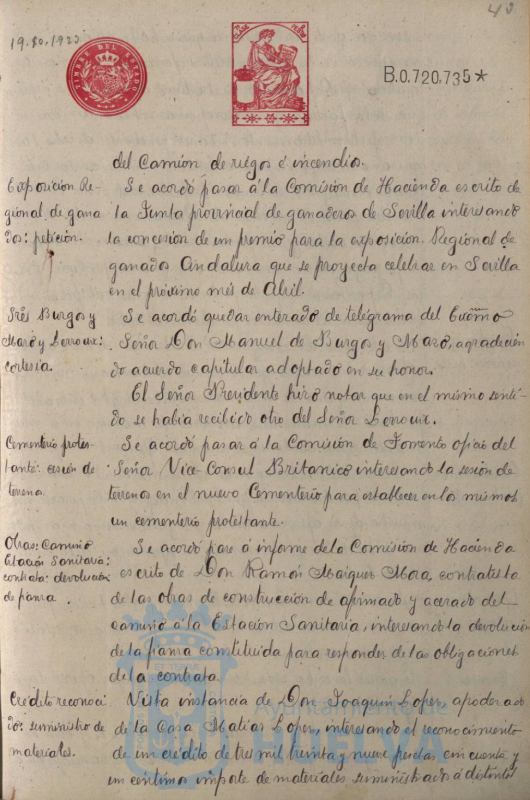 40
19.10.1923
TIMBRE DEL ESTADO
B.0.720,735*
del Camion de riegos é incendio.
Exposicion Re-
gional, de gana
dos: petición.
Se acordó pasar á la Comisión de Hacienda escrito de
la Junta provincial de ganaderos de Sevilla interesando
la concesion de un premio para la exposición Regional de
ganados Andaluza que se proyecta celebrar en Sevilla
en el próximo mes de Abril.
Sres Burgos y
Mazo y Lerroux:
cortesia.
Se acordó quedar enterado de telegrama del Excmo
Señor Don Manuel de Burgos y Mazo, agradecien
do acuerdo capitular adoptado en su honor.
El Señor Presidente hizo notar que en el mismo senti-
do se habia recibido otro del Señor Lerroux.
Cementerio protes-
tante: cesión de
terreno.
Se acordó pasar á la Comisión de Fomento oficio del
Señor Vice-Consul Britanico interesando la sesión de
terrenos en el nuevo Cementerio para establecer en los mismos
un cementerio protestante.
Obras: Camino
Estación Sanitaria:
contrata: devolución
de fianza.
Se acordó pase á informe de la Comisión de Hacienda
escrito de Don Ramón Marquez Mora, contratista
de las obras de construcción de afirmado y acerado del
camino á la Estación Sanitaria, interesando la devolución
de la fianza constituida para responder de las obligaciones
de la contrata.
Crédito reconoci
do: suministro de
materiales.
Vista instancia de Don Joaquin Lopez, apoderado
de la Casa Matias Lopez, interesando el reconocimiento
de un crédito de tres mil treinta y nueve pesetas cincuenta y
un centimo importe de materiales suministrados á distintos
Ayuntamiento de
HUELVA